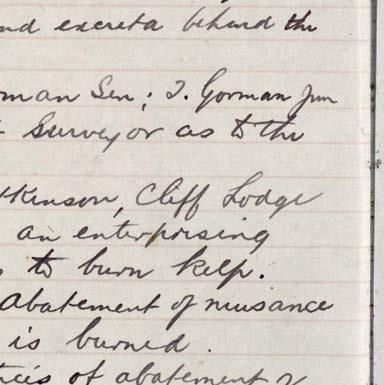 and excreta behind the
man Sen; T. Gorman Jun
Surveyor as to the
tkinson, Cliff Lodge
an enterprising
to burn kelp.
abatement of nuisance
is burned.
of abatement